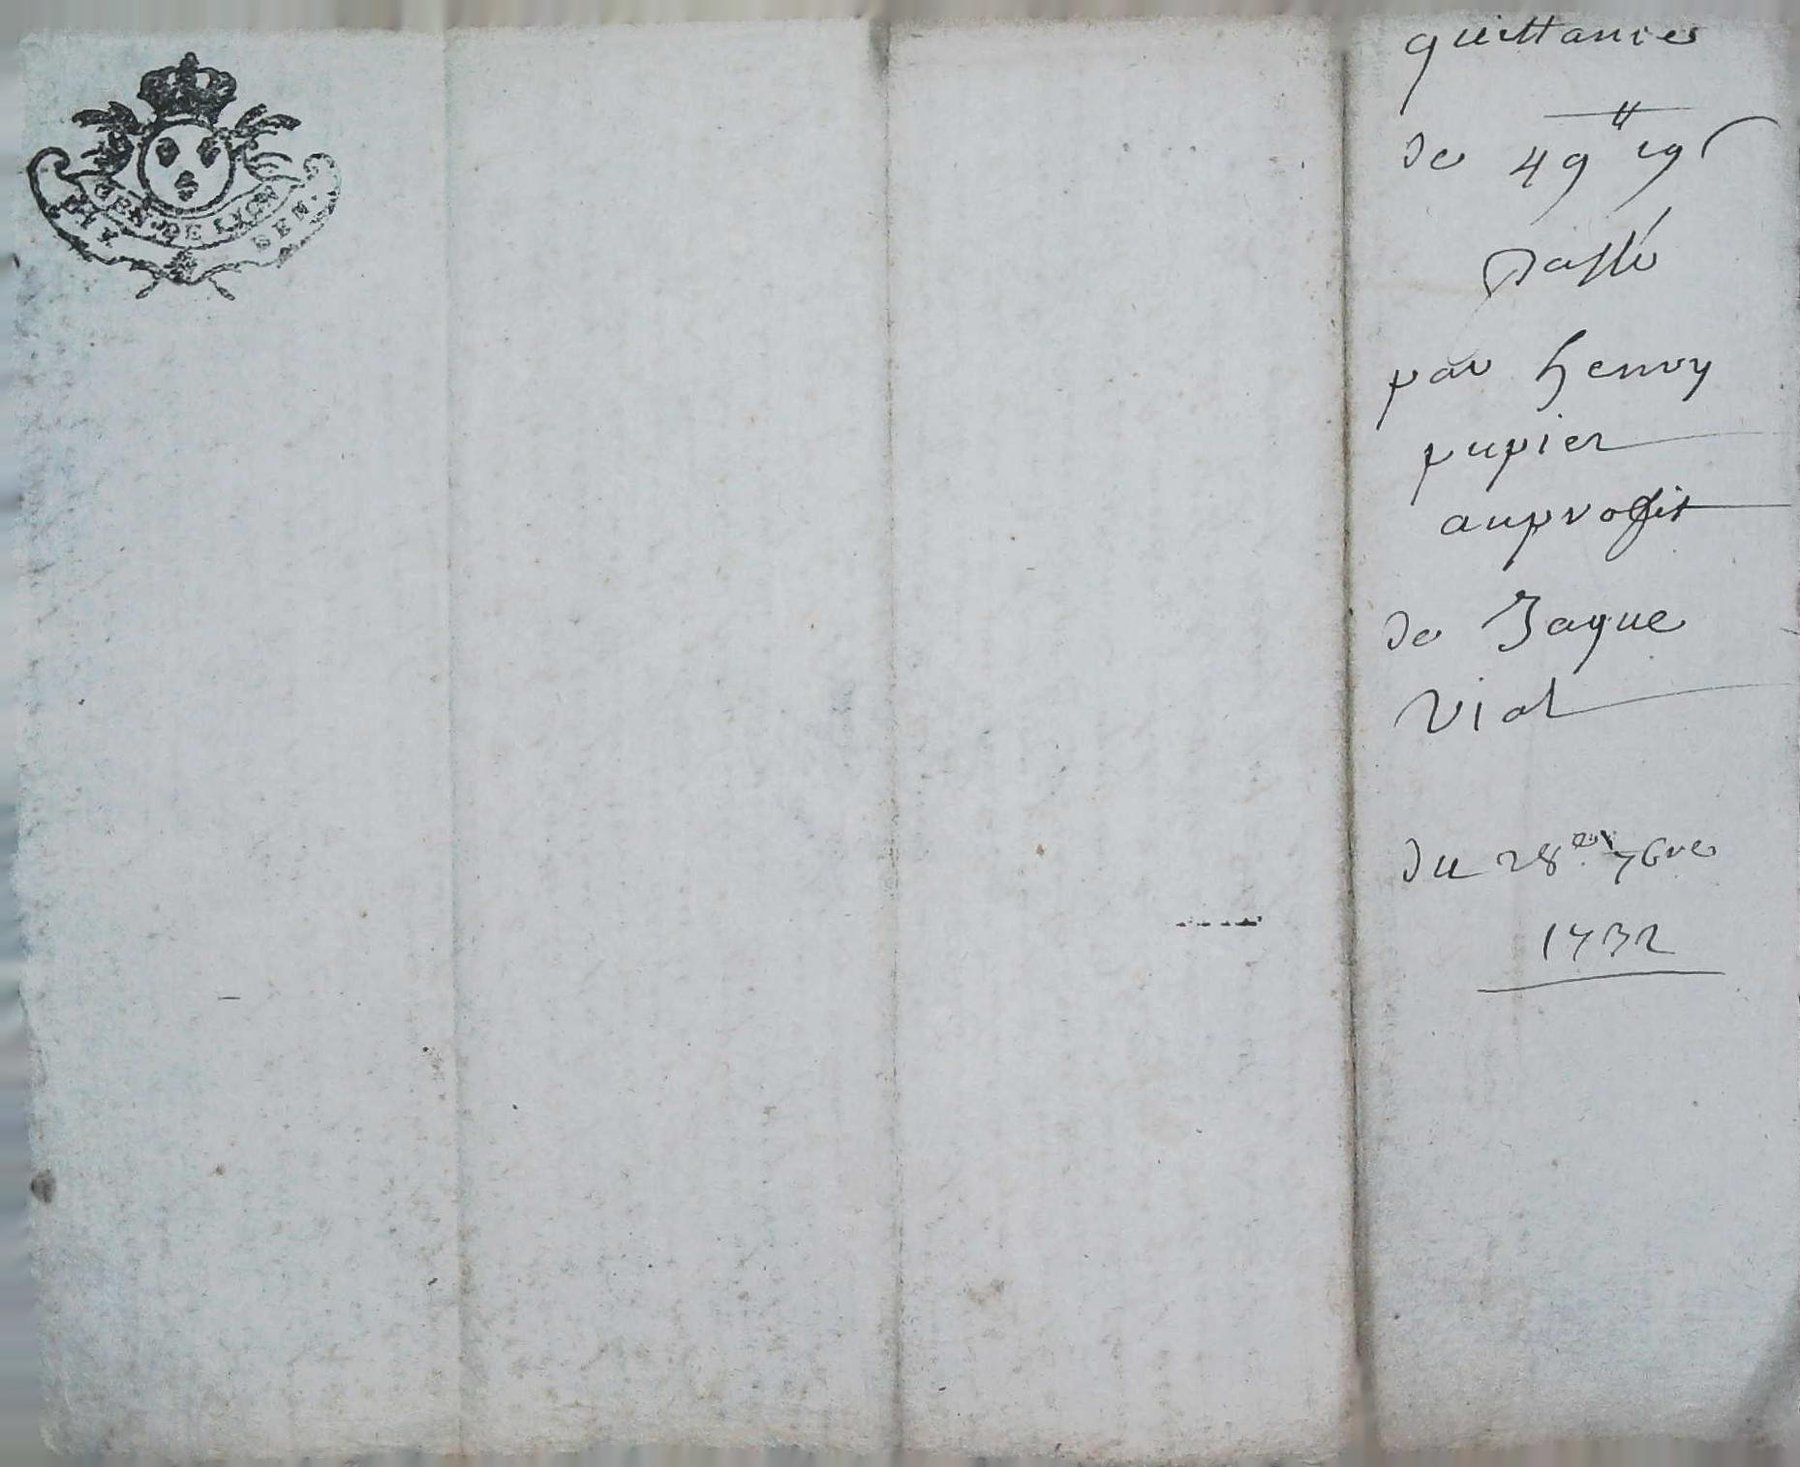 GEN. DE LYON
SIX DEN.
quittances
de 49ᵗᵗ 19ˢ
passé
par henry
pupier
auproffit
de Jaque
vial
du 28ᵉ 7bre
1732